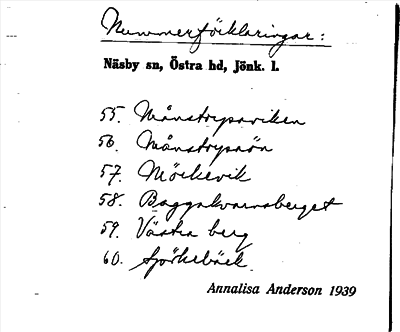 Nummerförklaringar:
Näsby sn, Östra hd, Jönk. l.
55. Månstorpsviken
56. Månstorpsön
57. Mörkevik
58. Baggakvarnsberget
59. Västra berg
60. Spörlebäck.
Annalisa Anderson 1939